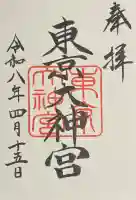 奉拝
東京大神宮
東京大神宮
令和八年四月十五日